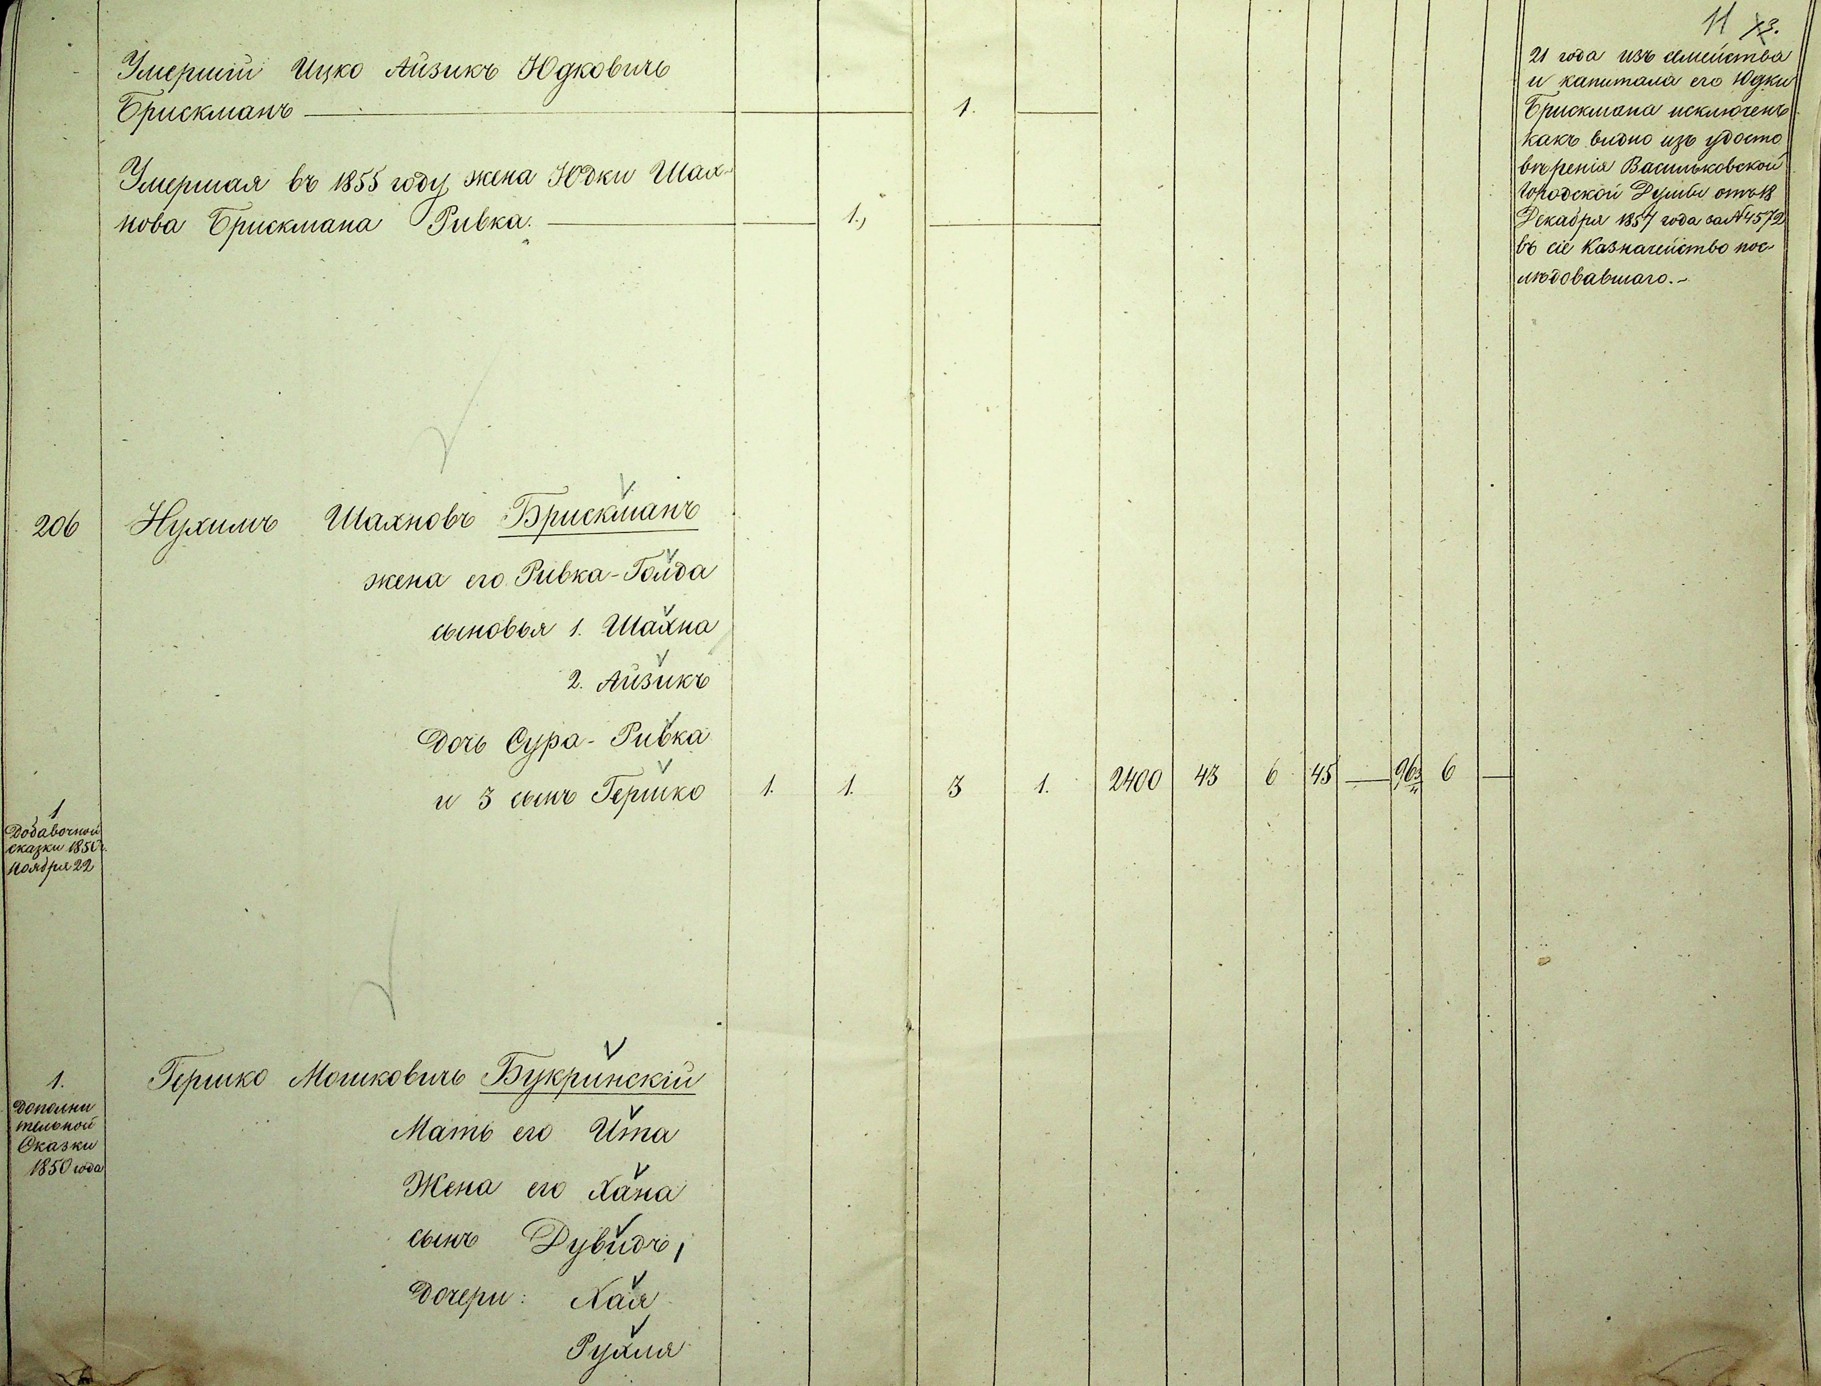 11 13.
Умершій Ицко Айзикъ Юдковичъ
Брискманъ 1.
Умершая въ 1855 году жена Юдки Шах-
нова Брискмана Ривка. 1.,
21 года изъ семейства
и капитала его Юдки
Брискмана исключенъ
какъ видно изъ удосто
вѣренія Васильковской
Городской Думы отъ 18
Декабря 1857 года за № 4572
въ сіе Казначейство пос-
лѣдовавшаго.-
206 Нухимъ Шахновъ Брискманъ
жена его Ривка-Голда
сыновья 1. Шахна
2. Айзикъ
Дочь Сура-Ривка
и 3 сынъ Гершко 1. 1. 3 1. 2400 43 6 45 6
1
Добавочной
сказки 1850 г.
ноября 22
1. Гершко Мошковичъ Букринскій
Дополни
тельной
Сказки
1850 года
Мать его Ита
Жена его Хана
сынъ Дувидъ,
Дочери: Хая
Рухля